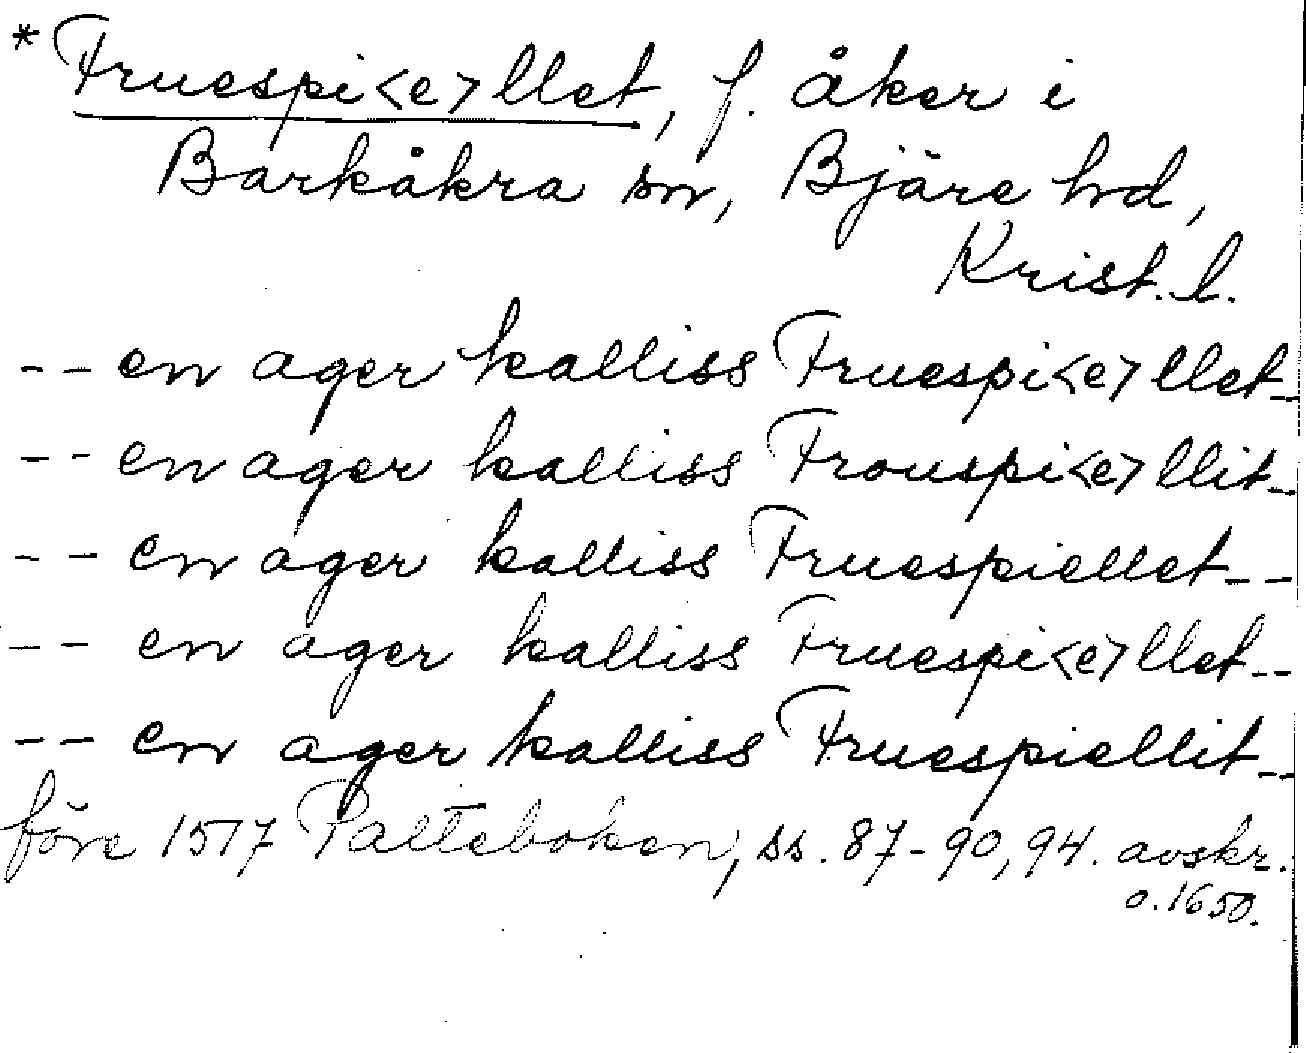 *Fruespi<e>llet, f. åker i
Barkåkra sn, Bjäre hd,
Krist. l.
-- en ager kalliss Fruespi<e>llet--
-- en ager kalliss Frouspi<e>llit--
-- en ager kalliss Fruespiellet--
-- en ager kalliss Fruespi<e>llet--
-- en ager kalliss Fruespiellit--
före 1517 Palteboken, ss. 87-90, 94. avskr.
o. 1650.